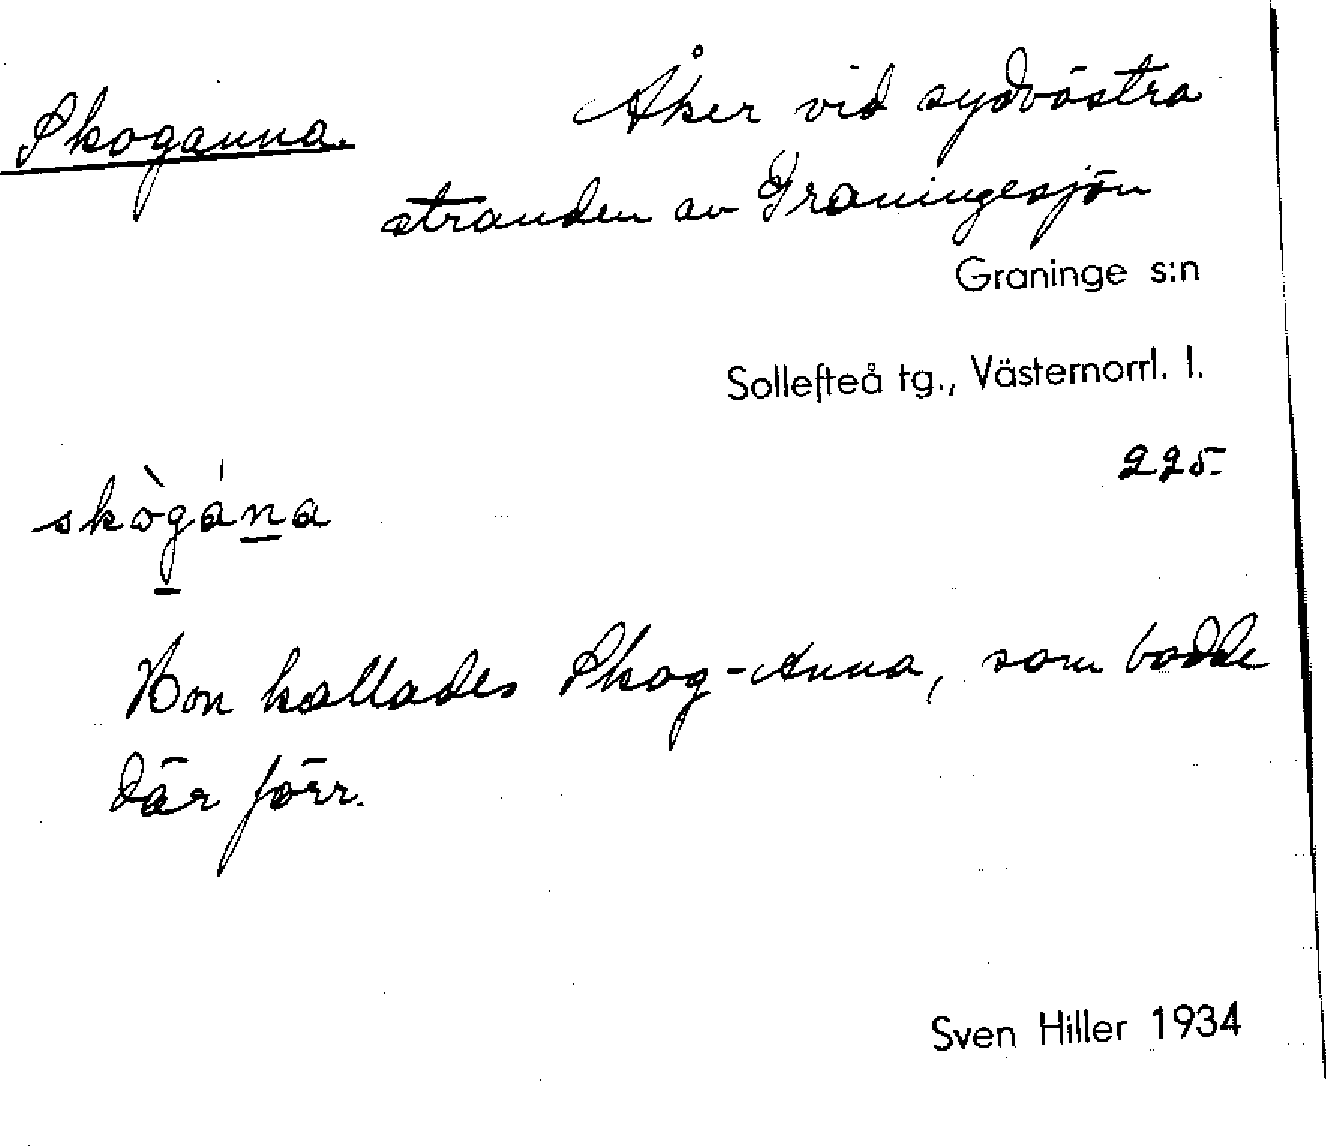 Skoganna. Åker vid sydvästra
stranden av Graningesjön
Graninge s:n
Sollefteå tg., Västernorrl. l.
225.
skògána
Hon kallades Skog-Anna, som bodde
där förr.
Sven Hiller 1934